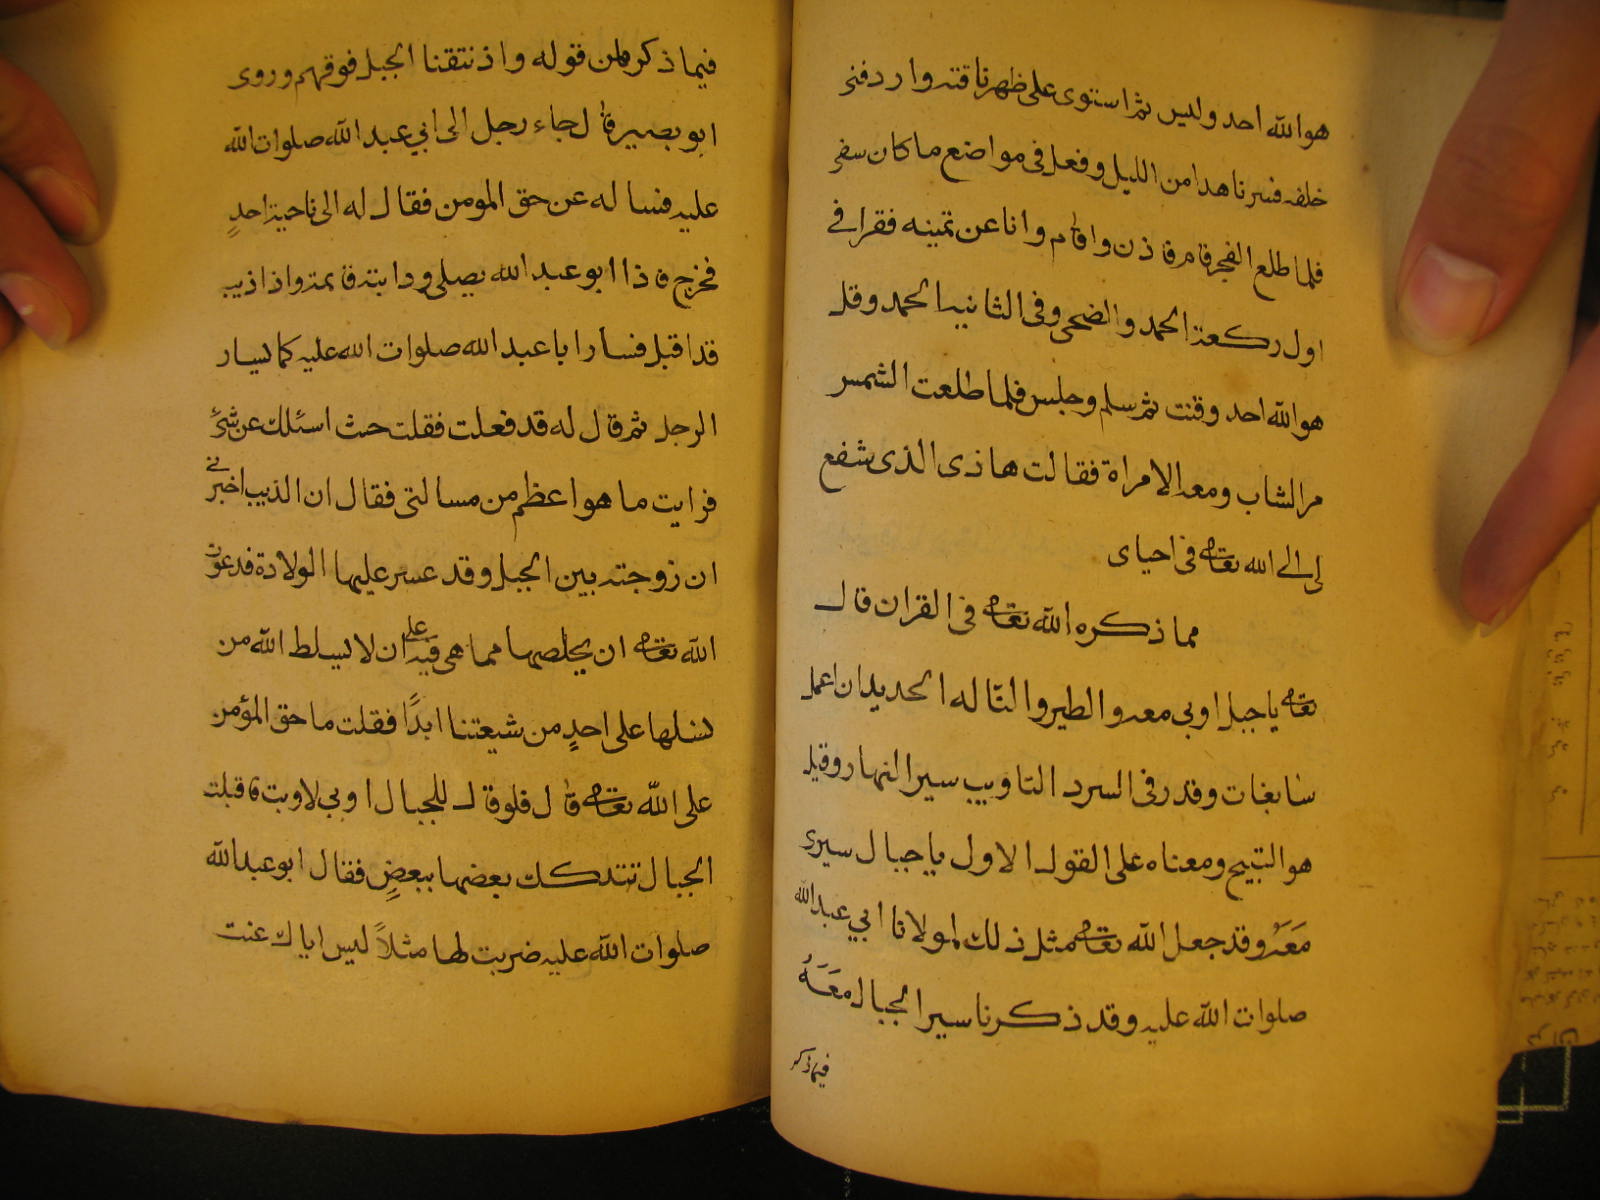 هو الله احد وليس ثم استوى على ظهر ناقته واردفنى
خلفه فسرنا هدا من الليل وفعل فى مواضع ما كان سفى
فلما طلع الفجر قام فاذن واقام وانا عن يمينه فقرا فى
اول ركعة الحمد والضحى وفى الثانيه الحمد وقل
هو الله احد وقنت ثم سلم وجلس فلما طلعت الشمس
مر الشاب ومعه الامراة فقالت هاذى الذى شفع
لى الى الله تعالى فى احياى
مما ذكره الله تعالى فى القران قال
تعالى يا جبل اوبى معه والطير والنّا له الحديد ان اعمل
سابغات وقدر فى السرد التاويب سير النهار وقيل
هو التبيح ومعناه على القول الاول يا جبال سيرى
مَعَهُ وقد جعل الله تعالى مثل ذلك لمولانا ابي عبد الله
صلوات الله عليه وقد ذكرنا سير الجبال مَعَهُ
فيما ذكر
فيما ذكر من قوله واذ نتقنا الجبل فوقهم وروى
ابو بصير قال جاء رجل الى ابي عبد الله صلوات الله
عليه فسا له عن حق المومن فقال له الى ناحية احدٍ
فخرج فاذا ابو عبد الله يصلى ودابته قائمة واذا ذيب
قد اقبل فسار ابا عبد الله صلوات الله عليه كما يسار
الرجل ثم قال له قد فعلت فقلت حث اسئلك عن شئ
فرايت ما هوا عظم من مسالتى فقال ان الذيب اخبرنى
ان زوجته بين الجبل وقد عسر عليها الولادة فدعوت
الله تعالى ان يخلصها مما هى فيه على ان لا يسلط الله من
نسلها على احدٍ من شيعتنا ابدًا فقلت ما حق المؤمن
على الله تعالى قال فلو قال للجبال اوبى لاوبت فاقبلت
الجبال تتدكك بعضها ببعضٍ فقال ابو عبد الله
صلوات الله عليه ضربت لها مثلاً ليس اياك عنت